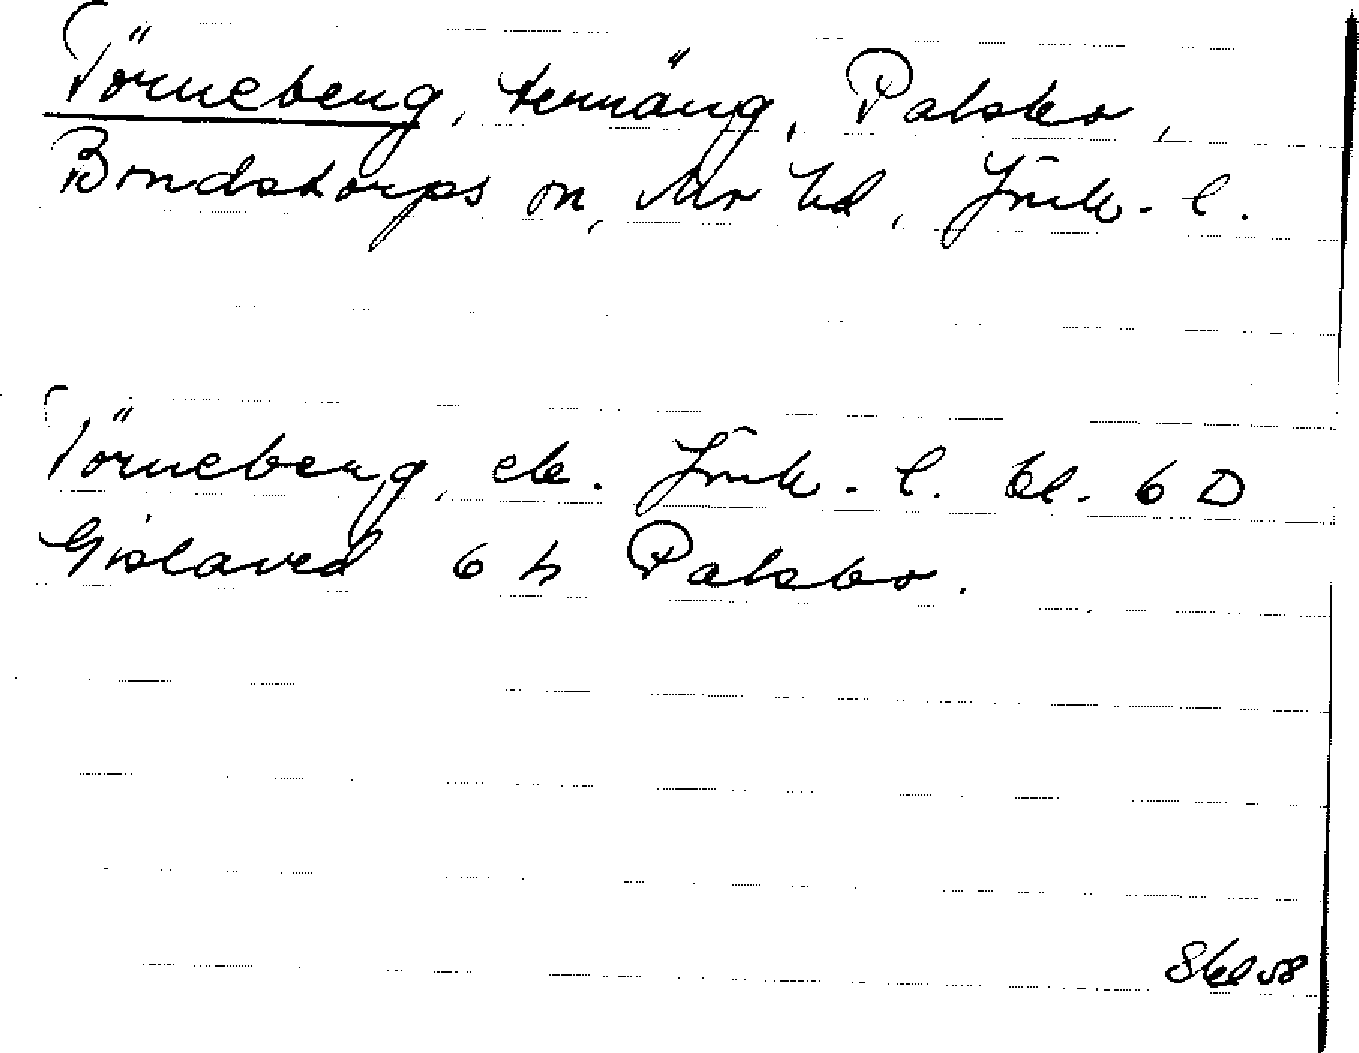 Törneberg, terräng, Palsbo,
Bondstorps sn, Mo hd, Jönk. l.
Törneberg, ek. Jönk. l. bl. 6 D
Gislaved 6 h Palsbo.
58